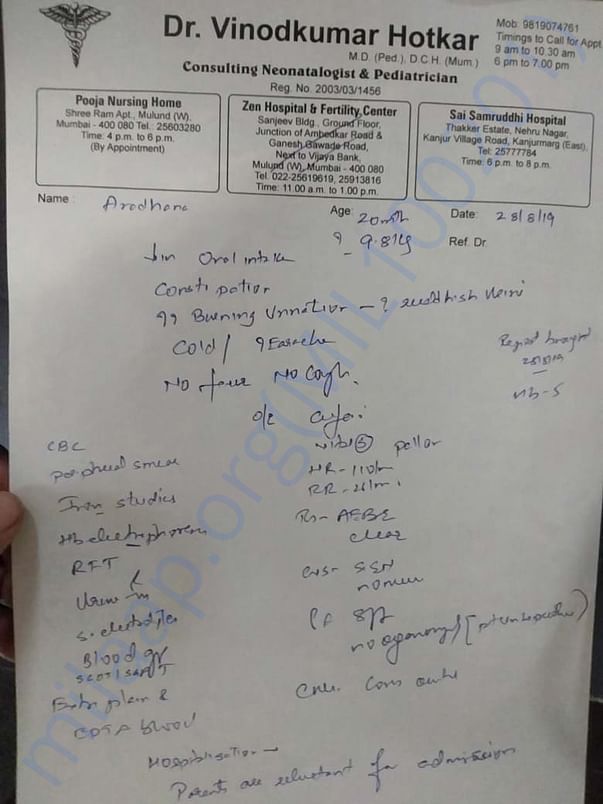 Dr. Vinodkumar Hotkar
M.D. (Ped.), D.C.H. (Mum.)
Consulting Neonatalogist & Pediatrician
Reg. No. 2003/03/1456
Mob. 9819074761
Timings to Call for Appt.
9 am to 10.30 am
6 pm to 7.00 pm
Pooja Nursing Home
Shree Ram Apt., Mulund (W),
Mumbai - 400 080 Tel.: 25603280
Time: 4 p.m. to 6 p.m.
(By Appointment)
Zen Hospital & Fertility Center
Sanjeev Bldg., Ground Floor,
Junction of Ambedkar Road &
Ganesh Gawade Road,
Next to Vijaya Bank,
Mulund (W), Mumbai - 400 080
Tel. 022-25619619, 25913816
Time: 11.00 a.m. to 1.00 p.m.
Sai Samruddhi Hospital
Thakker Estate, Nehru Nagar,
Kanjur Village Road, Kanjurmarg (East),
Tel: 25777784
Time: 6 p.m. to 8 p.m.
Name : Aradhana
Age: 20mth Date: 28/8/19
9.8kg Ref. Dr.
↓ in Oral intake
Constipation
Burning Urination - ? reddish
Cold / ? Earache
No fever No Cough.
o/e
pallor
HR - 110/m
RR - 26/m
Rs - AEBE
clear
CVS -
P/A soft
CNS - Cons
Hb - 5
CBC
peripheral smear
Iron studies
Hb electrophoresis
RFT
Urine
S. electrolytes
Blood gr
SGOT SGPT
Extra plain &
EDTA blood
Hospitalisation →
Parents are reluctant for admission
milaap.org